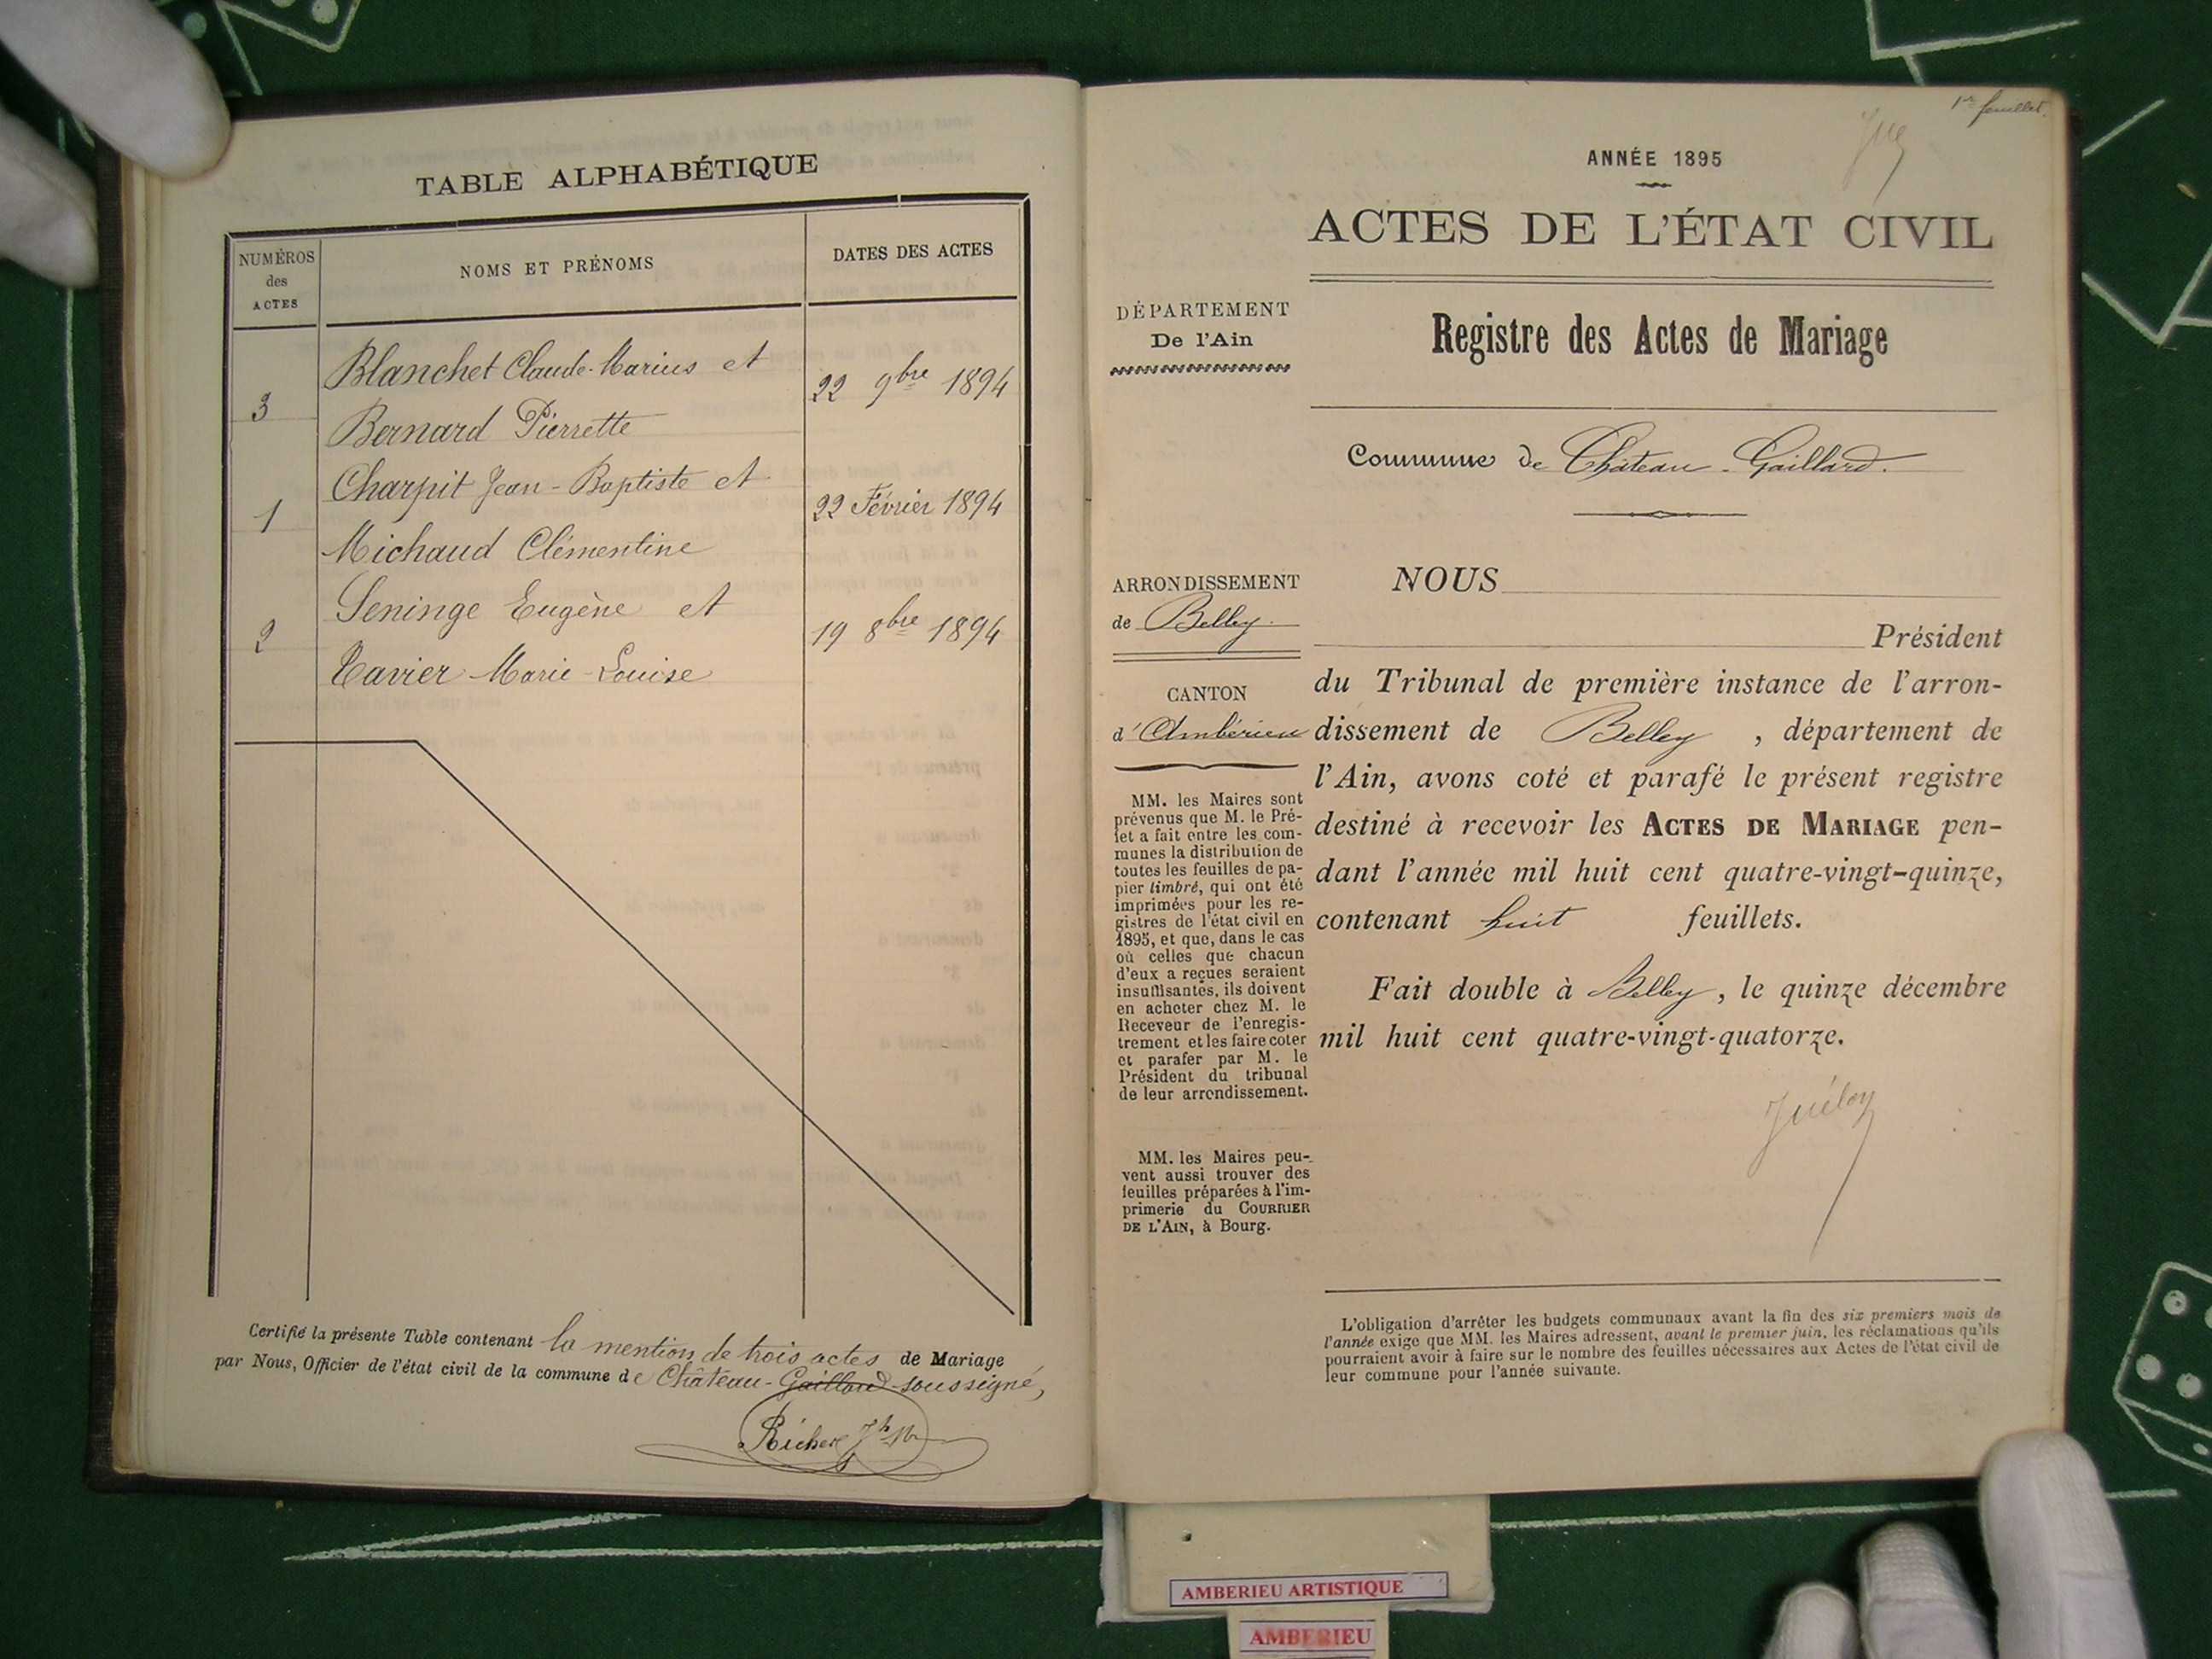 TABLE ALPHABÉTIQUE
NUMÉROS
des
ACTES
NOMS ET PRÉNOMS
DATES DES ACTES
3
Blanchet Claude-Marius et
Bernard Pierrette
22 9bre 1894
1
Charpit Jean-Baptiste et
Michaud Clémentine
22 Février 1894
2
Seninge Eugène et
Tavier Marie-Louise
19 8bre 1894
Certifié la présente Table contenant la mention de trois actes de Mariage
par Nous, Officier de l'état civil de la commune de Château-Gaillard soussigné,
1er feuillet.
ANNÉE 1895
ACTES DE L'ÉTAT CIVIL
DÉPARTEMENT
De l'Ain
Registre des Actes de Mariage
Commune de Château-Gaillard.
ARRONDISSEMENT
de Belley.
CANTON
d'Ambérieu
MM. les Maires sont
prévenus que M. le Pré-
fet a fait entre les com-
munes la distribution de
toutes les feuilles de pa-
pier timbré, qui ont été
imprimées pour les re-
gistres de l'état civil en
1895, et que, dans le cas
où celles que chacun
d'eux a reçues seraient
insuffisantes, ils doivent
en acheter chez M. le
Receveur de l'enregis-
trement et les faire coter
et parafer par M. le
Président du tribunal
de leur arrondissement.
MM. les Maires peu-
vent aussi trouver des
feuilles préparées à l'im-
primerie du COURRIER
DE L'AIN, à Bourg.
NOUS
Président
du Tribunal de première instance de l'arron-
dissement de Belley , département de
l'Ain, avons coté et parafé le présent registre
destiné à recevoir les ACTES DE MARIAGE pen-
dant l'année mil huit cent quatre-vingt-quinze,
contenant huit feuillets.
Fait double à Belley, le quinze décembre
mil huit cent quatre-vingt-quatorze.
L'obligation d'arrêter les budgets communaux avant la fin des six premiers mois de
l'année exige que MM. les Maires adressent, avant le premier juin, les réclamations qu'ils
pourraient avoir à faire sur le nombre des feuilles nécessaires aux Actes de l'état civil de
leur commune pour l'année suivante.
AMBERIEU ARTISTIQUE
AMBERIEU